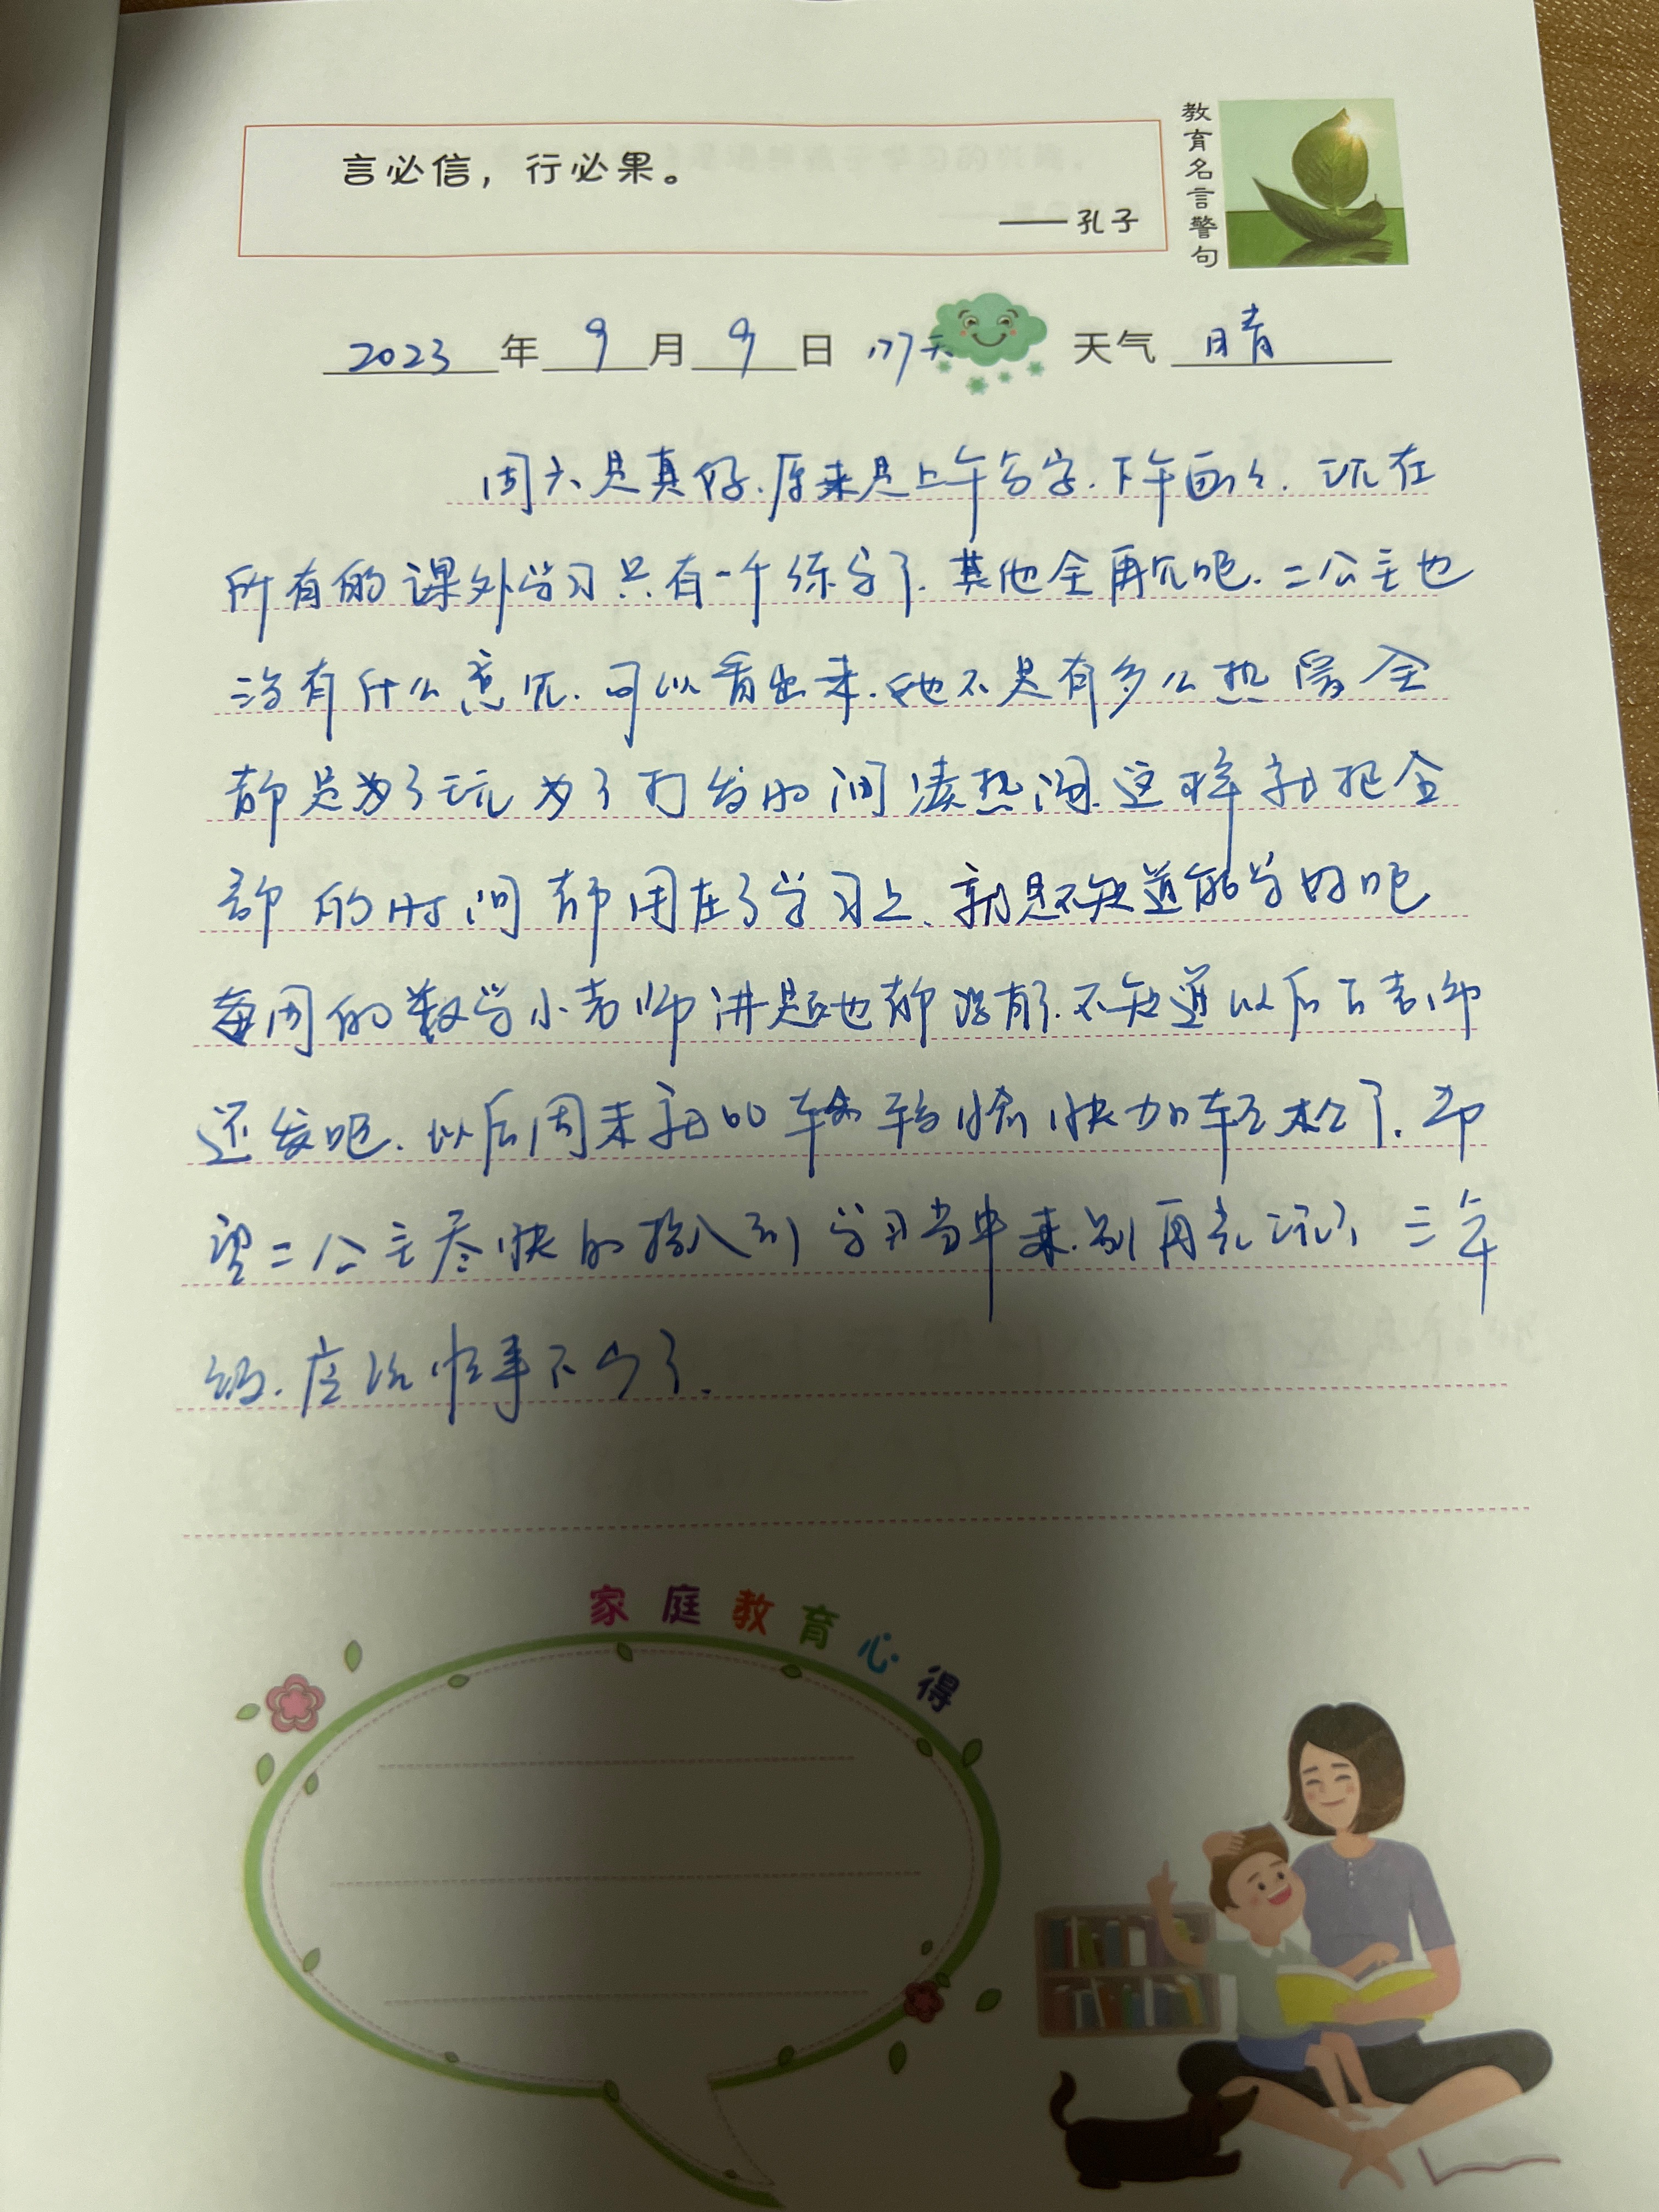 教育名言警句
言必信，行必果。
——孔子
2023年9月9日 177天 天气 晴
周六是真好.原来是上午写字.下午画画.现在
所有的课外学习只有一个练字了.其他全再见吧.二公主也
没有什么意见.可以看出来.她不是有多么热爱全
都是为了玩为了打发时间凑热闹.这样就把全
部的时间都用在了学习上、就是不知道能学好吧
每周的数学小老师讲题也都没有了.不知道以后石老师
还发吧.以后周末就的轻松愉快加轻松了.希
望二公主尽快的投入到学习当中来.别再老玩了三年
级.应该懂事不少了.
家庭教育心得